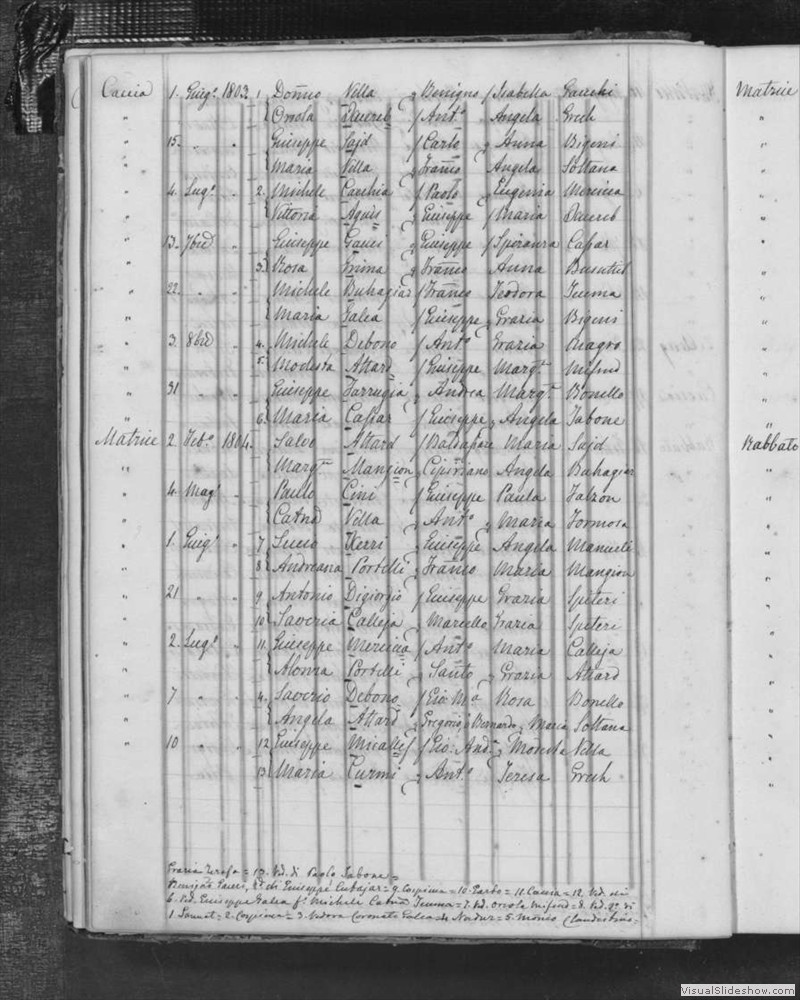 Caccia 1. Giug.º 1803. 1 Doñno Villa Benigno Isabella Gauchi Matrice
" Orsola Quereb Ant.º Angela Grech "
" 15. " " Giuseppe Sajd Carlo Anna Bigeni "
" Maria Villa Franco Angela Soltana "
" 4. Lug.º " 2. Michele Cacchia Paolo Eugenia Mercieca "
" Vittoria Aquis Giuseppe Maria Quereb "
" 13. 7bre " Giuseppe Gauci Giuseppe Speranza Caspar "
" 3. Rosa Grima Franco Anna Busuttil "
" 22. " " Michele Buhagiar Franco Teodora Teuma "
" Maria Galea Giuseppe Grazia Bigeni "
" 3. 8bre " 4. Michele Debono Ant.º Grazia
" 5. Modesta Attard Giuseppe Marg.ta Mifsud "
" 31 " " Giuseppe Farrugia Andrea Marg.ta Bonello "
" 6. Maria Caspar Giuseppe Angela Tabone "
Matrice 2. Feb.º 1804. Salvo Attard Baldasare Maria Sajd Rabbato
" Marg.ta Mangion Cipriano Angela Buhagiar "
" 4. Mag.º " Paulo Cini Giuseppe Paula Falzon "
" Catna Villa Ant.º Maria Formosa "
" 1. Giug.º " 7 Lucio Kerri Giuseppe Angela Manueli "
" 8 Andreana Portelli Franco Maria Mangion "
" 21 " " 9 Antonio Digiorgio Giuseppe Grazia Spiteri "
" 10 Saveria Calleja Marcello Grazia Spiteri "
" 2. Lug.º " 11. Giuseppe Mercieca Ant.º Maria Calleja "
" Alonza Portelli Santo Grazia Attard "
" 7 " " 4. Saverio Debono Gio: M.a Rosa Bonello "
" Angela Attard Gregorio Bernardo Maria Soltana "
" 10 " " 12 Giuseppe Micallef Gio: And.a Modesta Villa "
13 Maria Curmi Ant.º Teresa Grech
Grazia = 13. Vid. di Paolo Tabone =
Gauci, di Giuseppe = 9. Cospicua = 10. = 11. Caccia = 12. Vid. di
6. Vid. Giuseppe Galea f. Michele Teuma = 7. Vid. Orsola Mifsud = 8. Vid. di
1. = 2. Cospicua = 3. Vedova Galea de Nadur = 5. Clandestino
VisualSlideshow.com